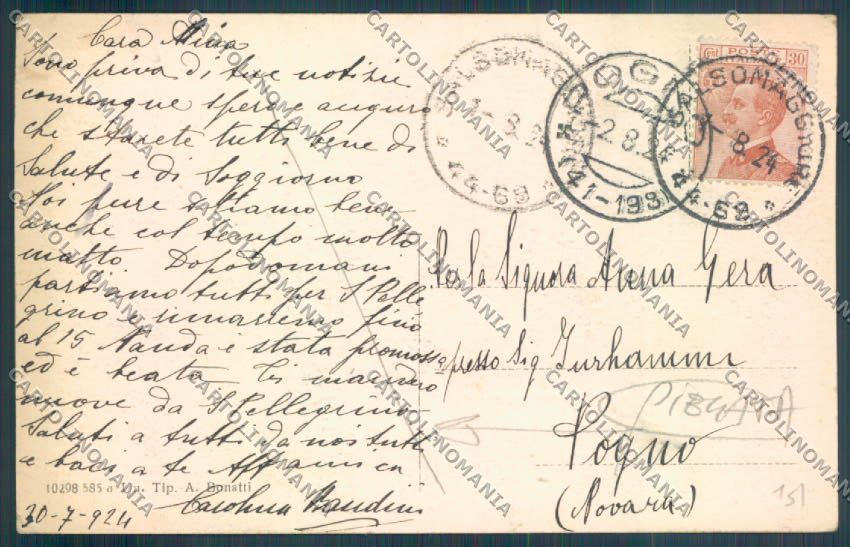 Cara Mina
Sono priva di tue notizie
comunque spero e auguro
che starete tutti bene di
salute e di soggiorno
Noi pure stiamo bene
anche col tempo molto
matto Dopodomani
partiamo tutti per S. Pelle
grino e rimarremo fino
al 15 Nanda è stata promossa
ed è beata Ti manderò
nuove da S. Pellegrino
Saluti a tutti da noi tutti
e baci a te Aff amica
Carolina
10298 585 a Tip. A. Bonatti
30-7-924
SALSOMAGGIORE
8.24
44-69
POGNO
2.8.2
41-193
SALSOMAGGIORE
8.24
44-69
Cent POSTE 30
Per la Signora Anna Gera
presso Sig
Pogno
(Novara)
151
CARTOLINOMANIA